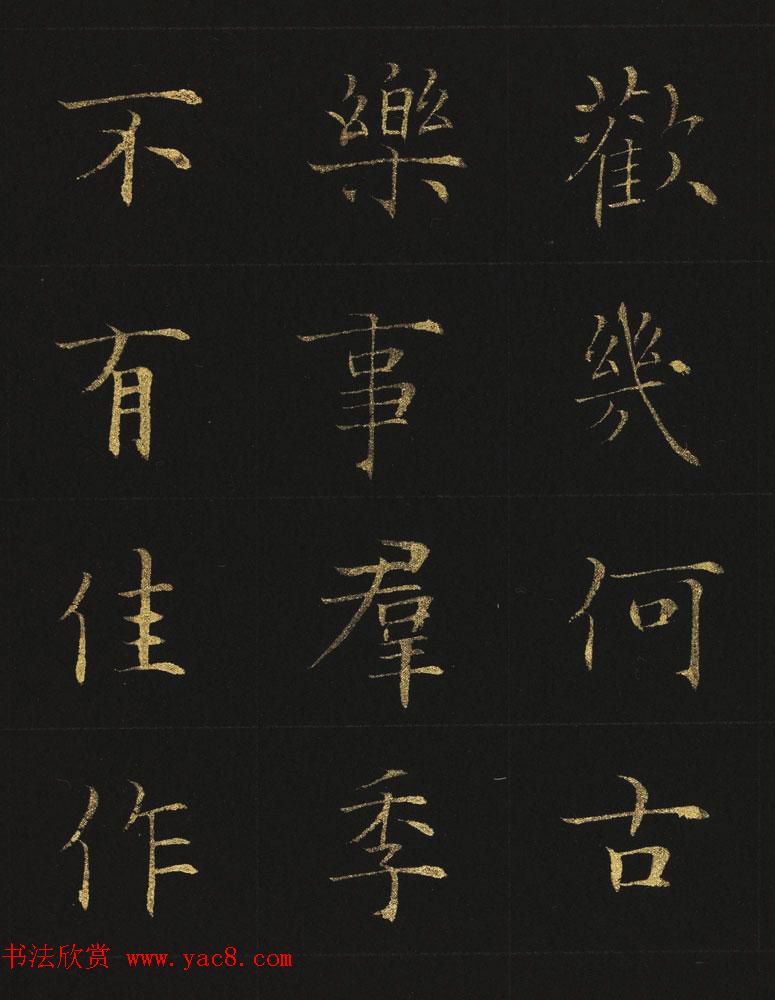 歡幾何古
樂事羣季
不有佳作
书法欣赏 www.yac8.com